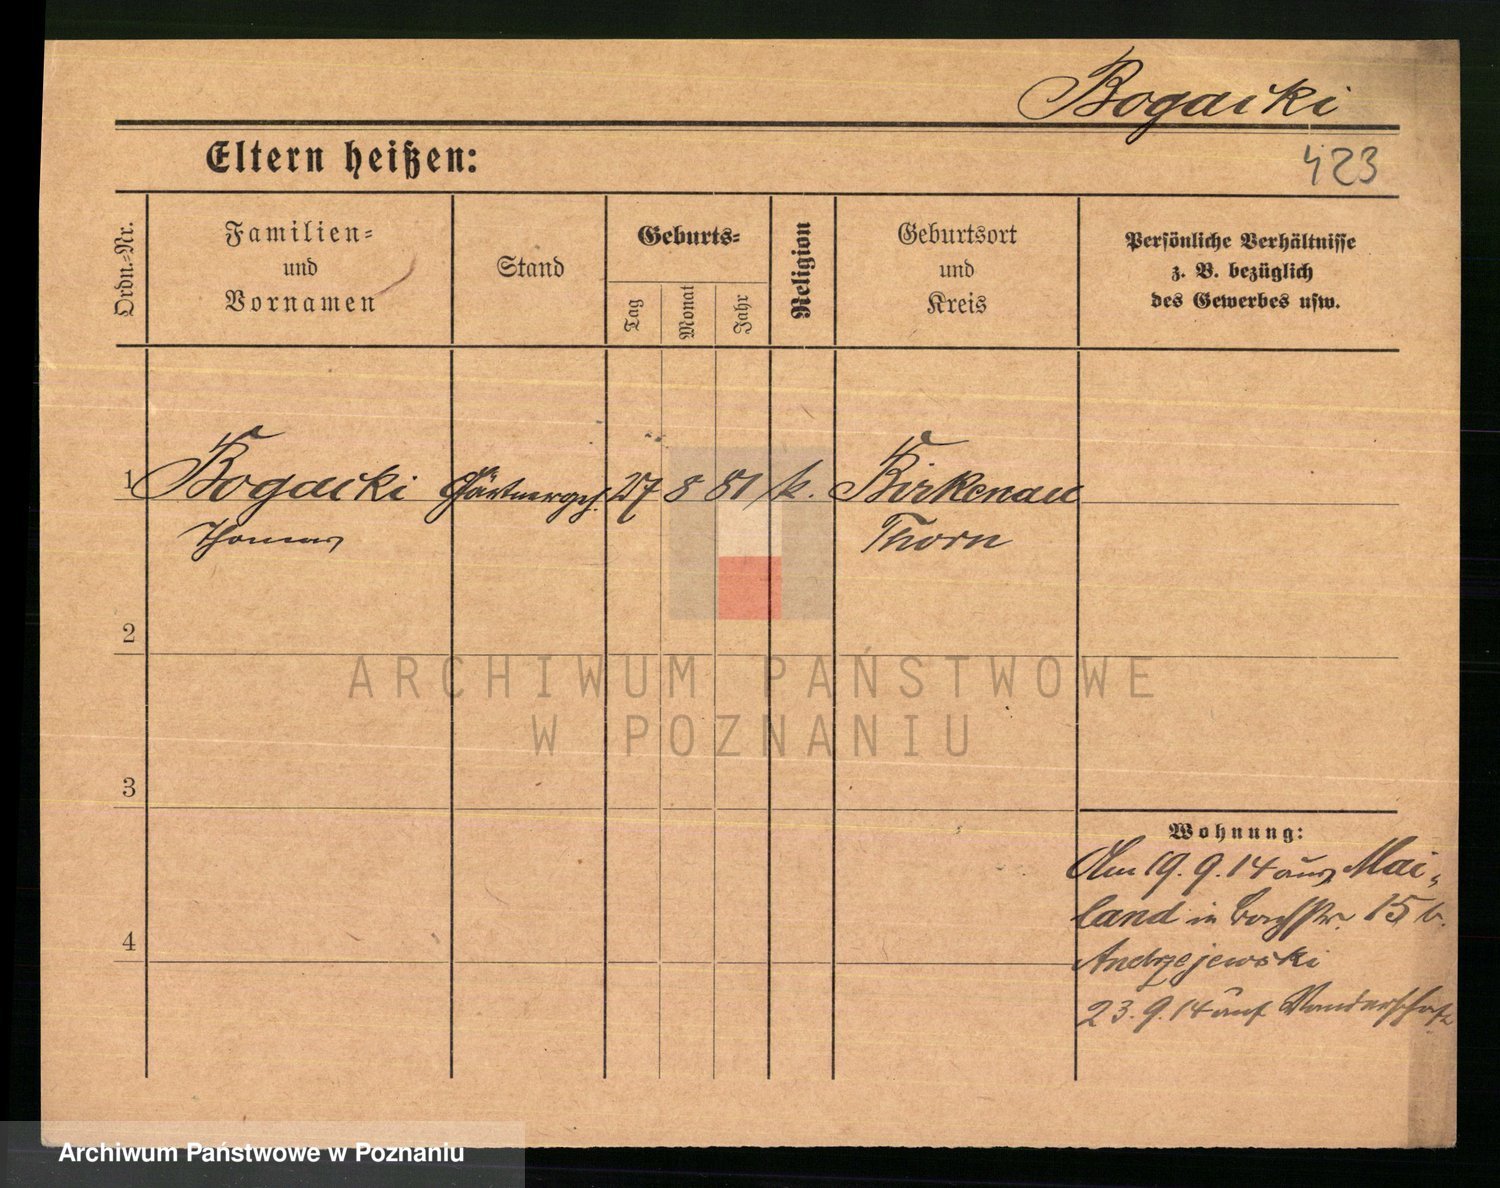 Bogacki
Eltern heißen:
423
Ordn.=Nr.
Familien=
und
Vornamen
Stand
Geburts=
Tag
Monat
Jahr
Religion
Geburtsort
und
Kreis
Persönliche Verhältnisse
z. B. bezüglich
des Gewerbes usw.
1 Bogacki Gärtnergeh. 27 8 81 k. Birkenau
Thomas Thorn
2
3
4
Wohnung:
Am 19.9.14 aus Mai-
land in 15 b.
Andrzejewski
23.9.14 auf Wanderschaft
ARCHIWUM PAŃSTWOWE
W POZNANIU
Archiwum Państwowe w Poznaniu